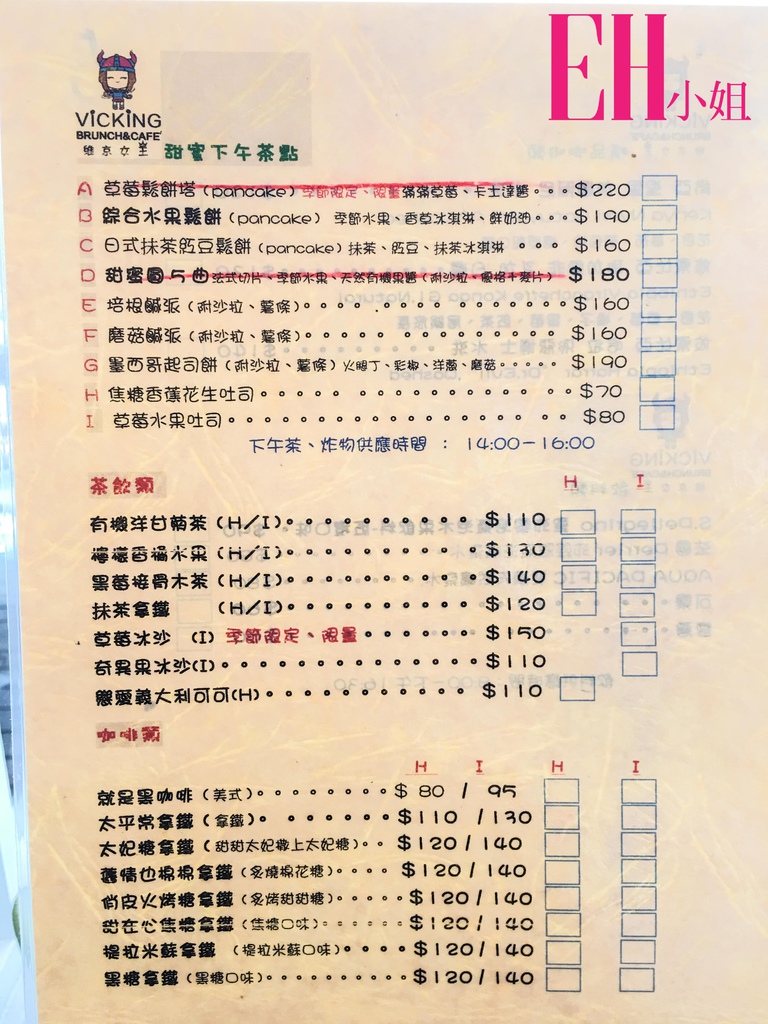 EH小姐
VICKING
BRUNCH&CAFE'
維京女王
甜蜜下午茶點
A 草莓鬆餅塔(pancake)季節限定、限量滿滿草莓、卡士達醬。。。$220
B 綜合水果鬆餅(pancake) 季節水果、香草冰淇淋、鮮奶油。。。$190
C 日式抹茶紅豆鬆餅(pancake)抹茶、紅豆、抹茶冰淇淋 。。。$160
D 甜蜜圓5曲法式切片、季節水果、天然有機果醬(附沙拉、優格+麥片) $180
E 培根鹹派(附沙拉、薯條)。。。。。。。。。。。。。。$160
F 磨菇鹹派(附沙拉、薯條)。。。。。。。。。。。。。。$160
G 墨西哥起司餅(附沙拉、薯條)火腿丁、彩椒、洋蔥、磨菇。。。。。。$190
H 焦糖香蕉花生吐司。。。。。。。。。。。。。。。。$70
I 草莓水果吐司。。。。。。。。。。。。。。。。。。$80
下午茶、炸物供應時間 : 14:00-16:00
茶飲類 H I
有機洋甘菊茶(H/I)。。。。。。。。。。$110
檸檬香橘水果(H/I)。。。。。。。。。。$130
黑莓接骨木茶(H/I)。。。。。。。。。。$140
抹茶拿鐵 (H/I)。。。。。。。。。。$120
草莓冰沙 (I) 季節限定、限量。。。。。。$150
奇異果冰沙(I)。。。。。。。。。。。。。$110
戀愛義大利可可(H)。。。。。。。。。。。$110
咖啡類
H I H I
就是黑咖啡(美式)。。。。。。。。$ 80 / 95
太平常拿鐵(拿鐵)。 。。。。。。$110 /130
太妃糖拿鐵(甜甜太妃撒上太妃糖)。。$120/140
舊情也棉棉拿鐵(炙燒棉花糖)。。。。$120/140
俏皮火烤糖拿鐵(炙烤甜甜糖)。。。。$120/140
甜在心焦糖拿鐵(焦糖口味)。。。。。。$120/140
提拉米蘇拿鐵 (提拉米蘇口味)。。。。$120/140
黑糖拿鐵(黑糖口味)。。。。。。。。。$120/140